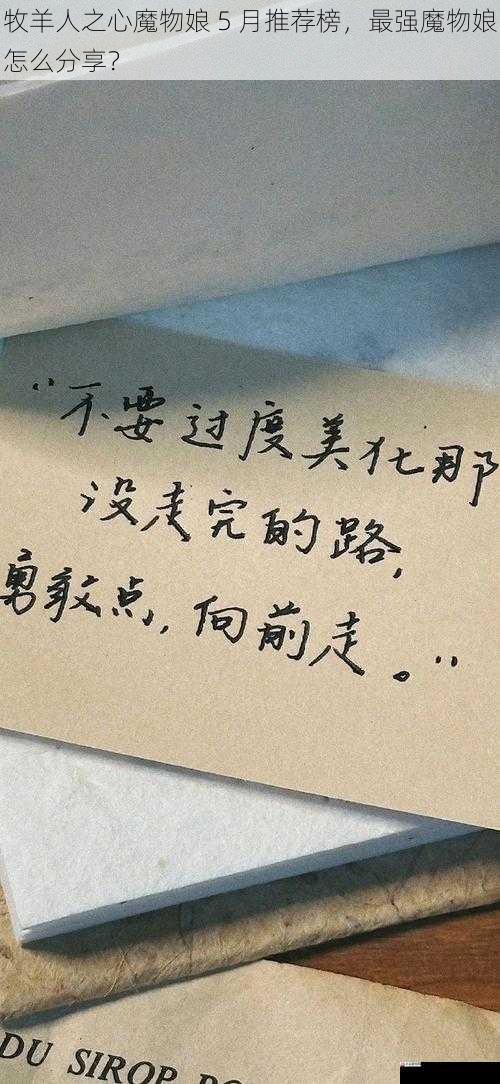 牧羊人之心魔物娘 5 月推荐榜，最强魔物娘
怎么分享？
“不要过度美化那
没走完的路，
勇敢点，向前走。”
DU SIROP